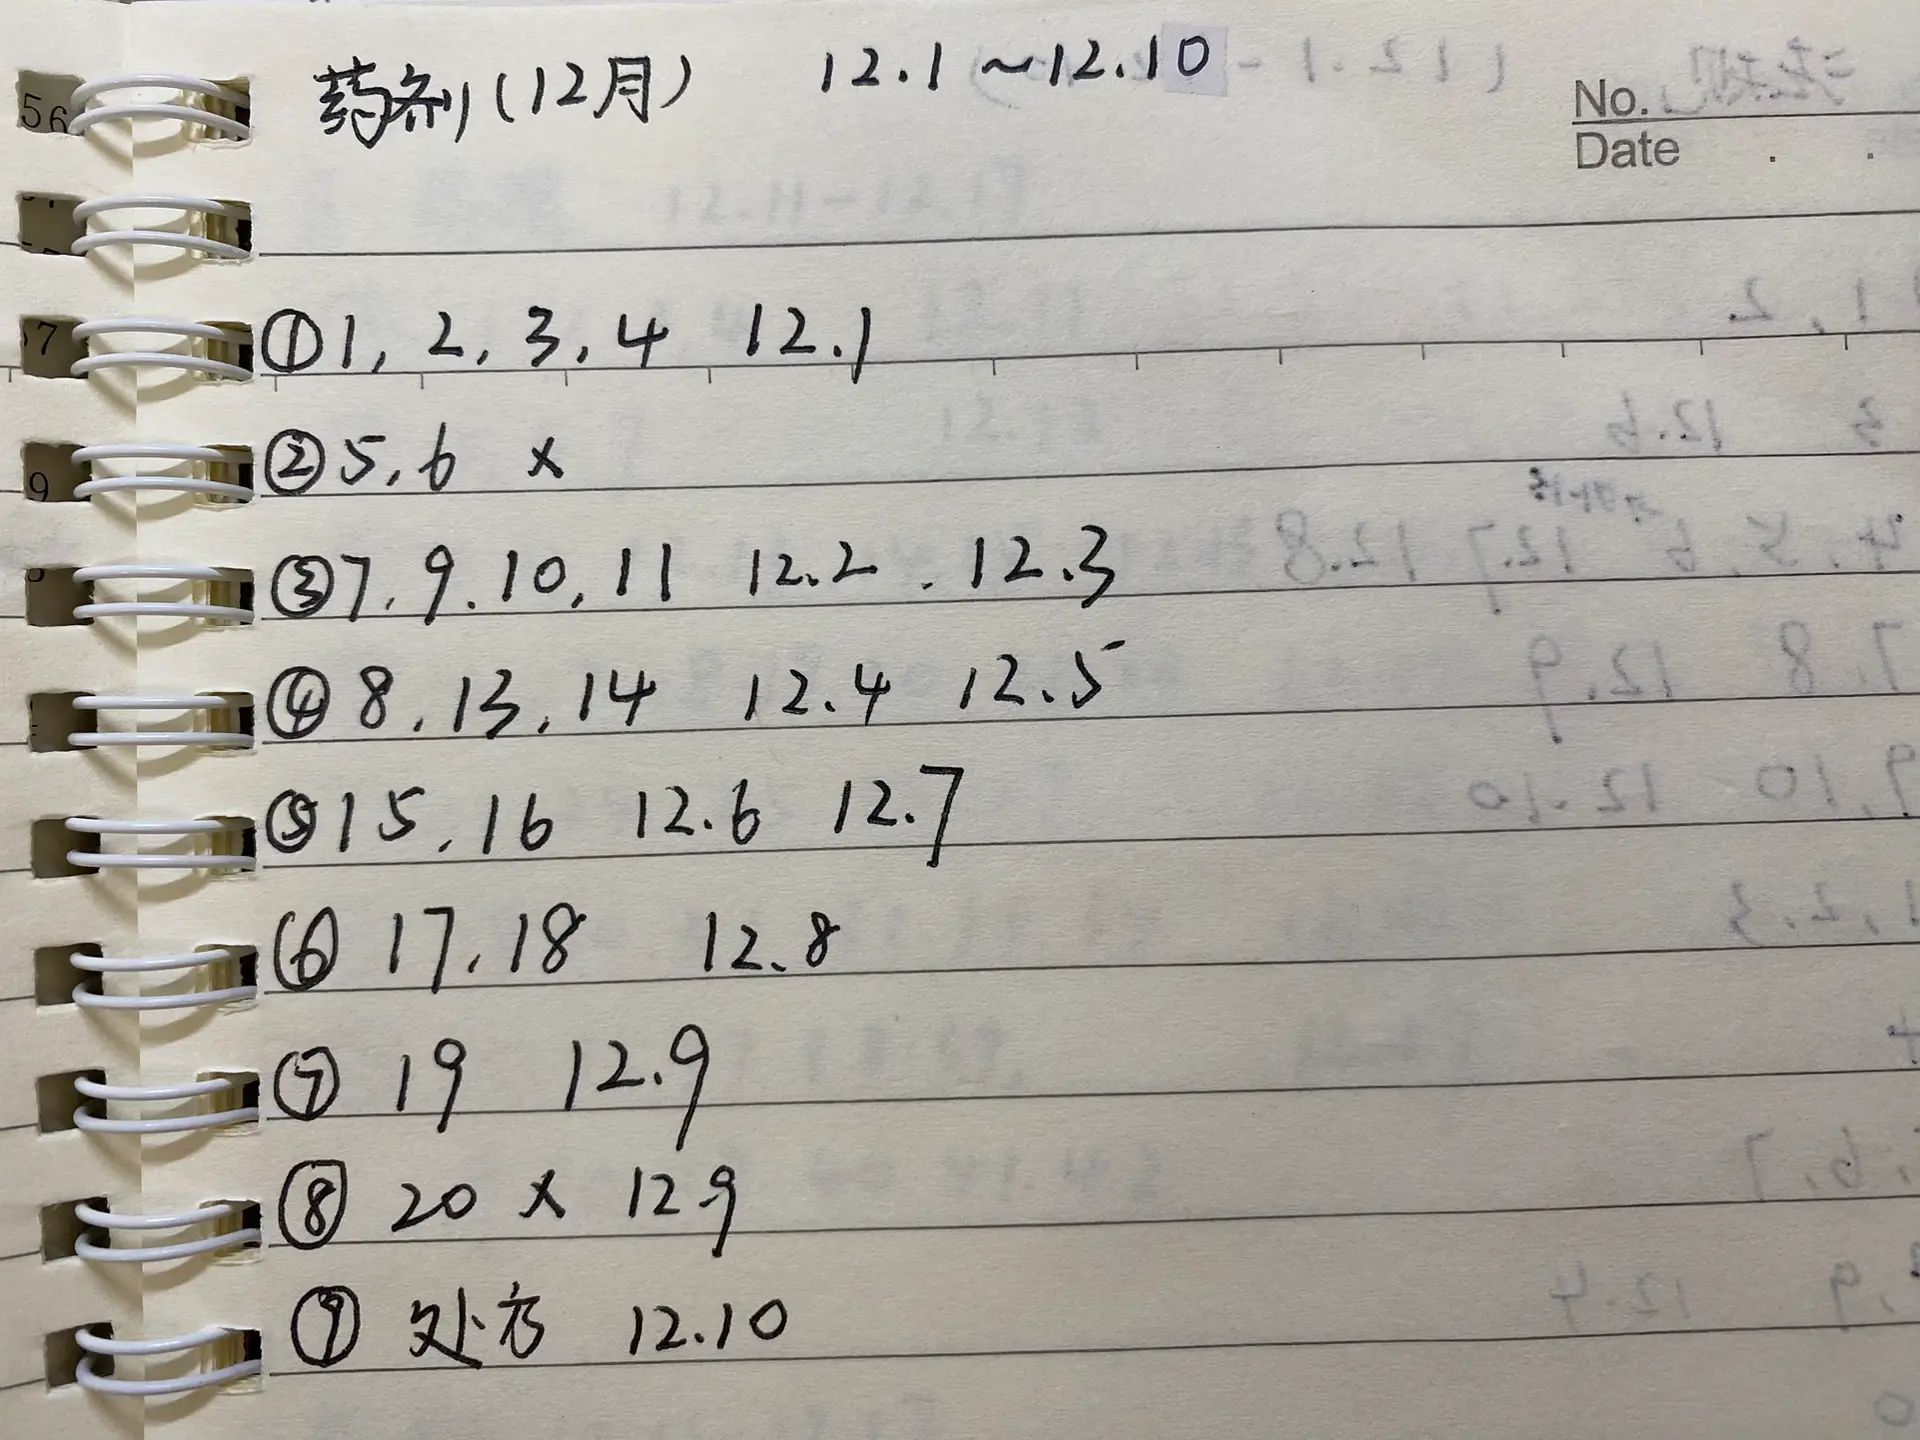 药剂(12月) 12.1~12.10
No.
Date . .
①1, 2, 3, 4 12.1
②5, 6 ×
③7, 9. 10, 11 12.2 . 12.3
④8, 13, 14 12.4 12.5
⑤15, 16 12.6 12.7
⑥ 17, 18 12.8
⑦ 19 12.9
⑧ 20 × 12.9
⑨ 处方 12.10
56
7
9